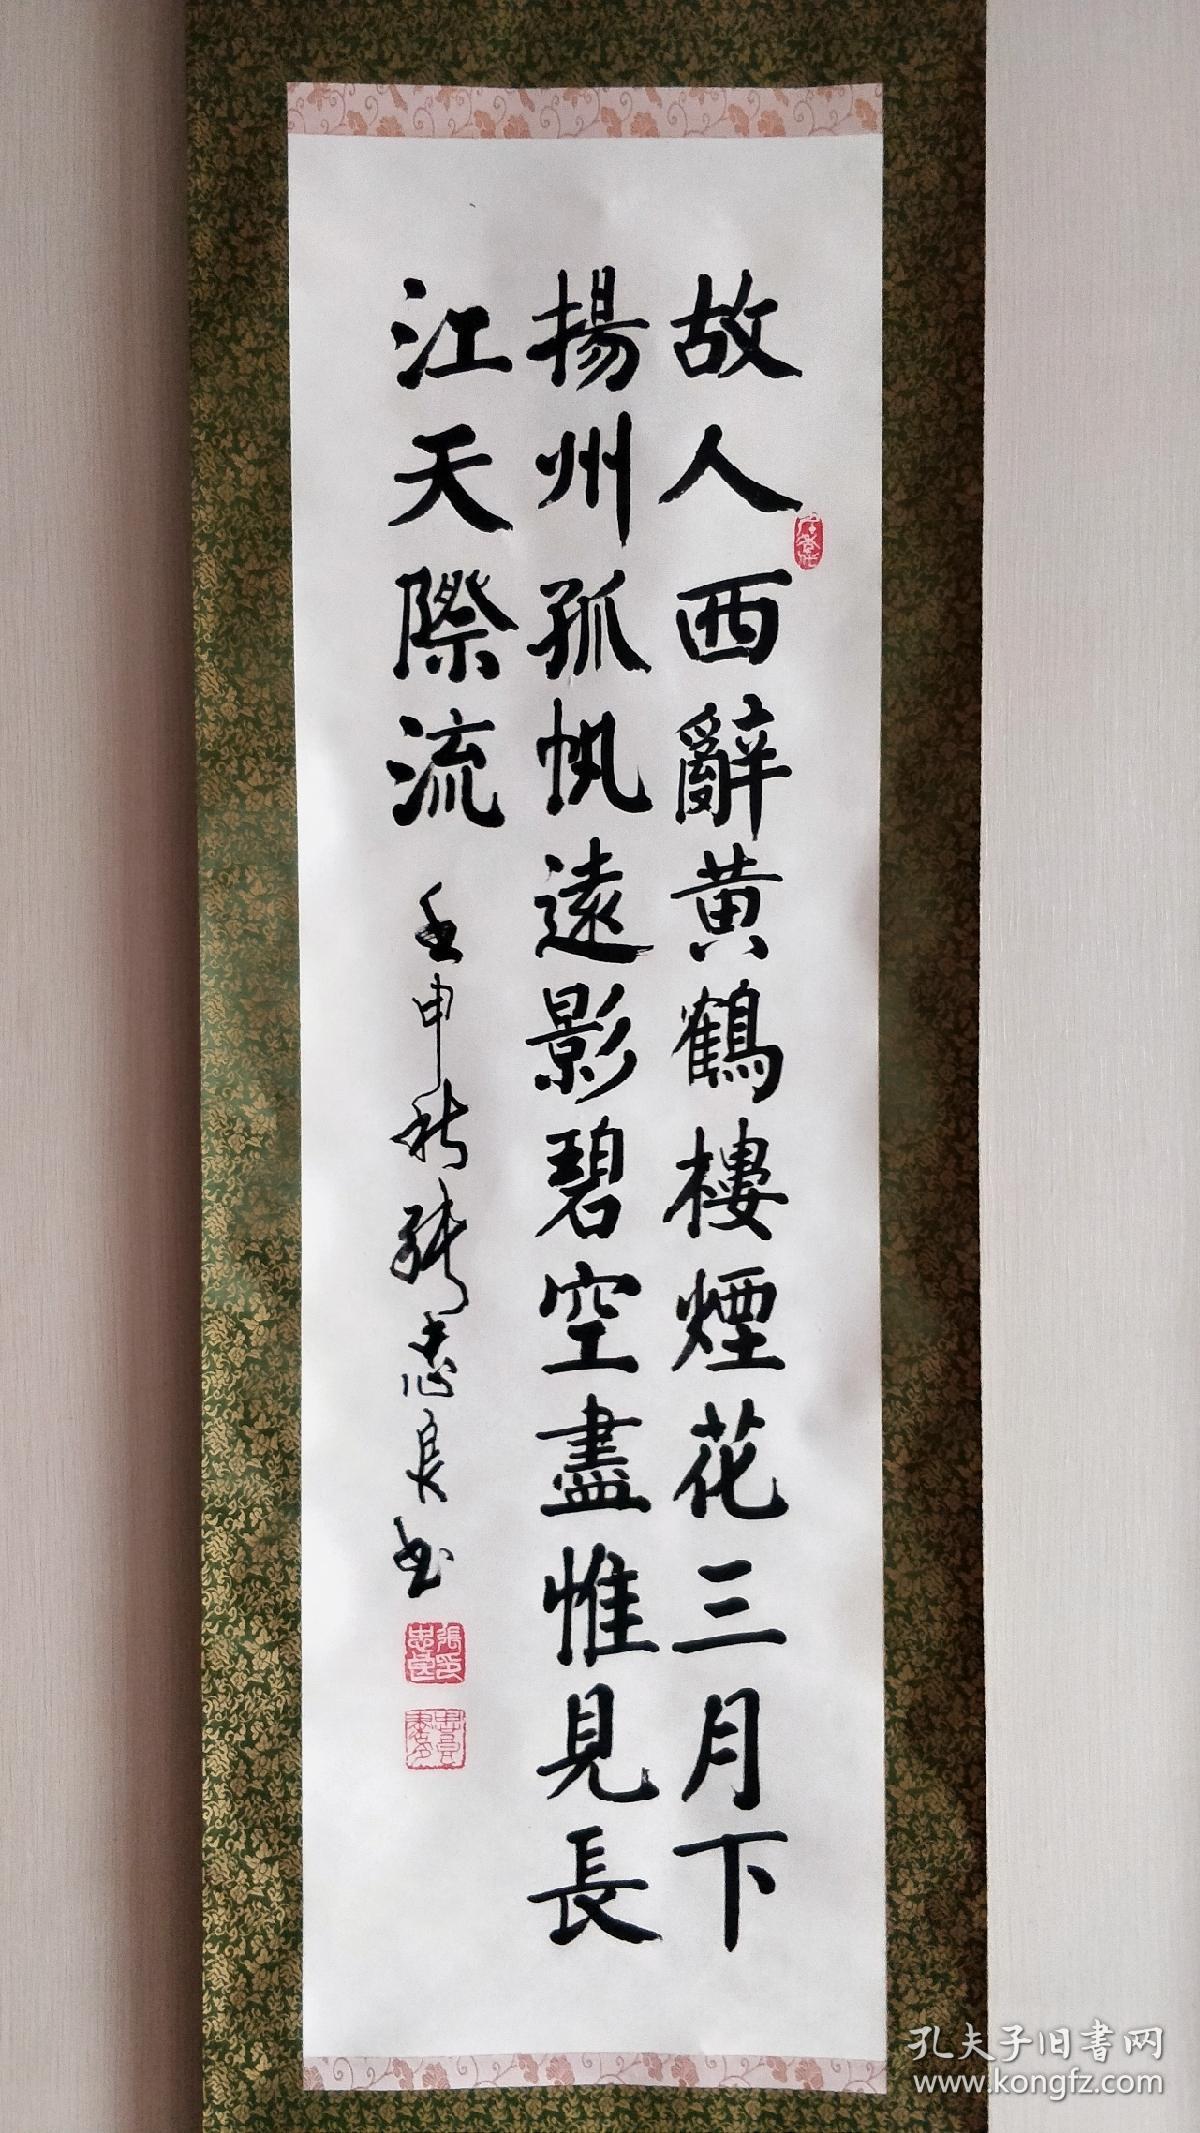 故人西辭黄鶴樓煙花三月下
揚州孤帆遠影碧空盡惟見長
江天際流
壬申秋張忠良书
張印忠良
孔夫子旧書网
www.kongfz.com